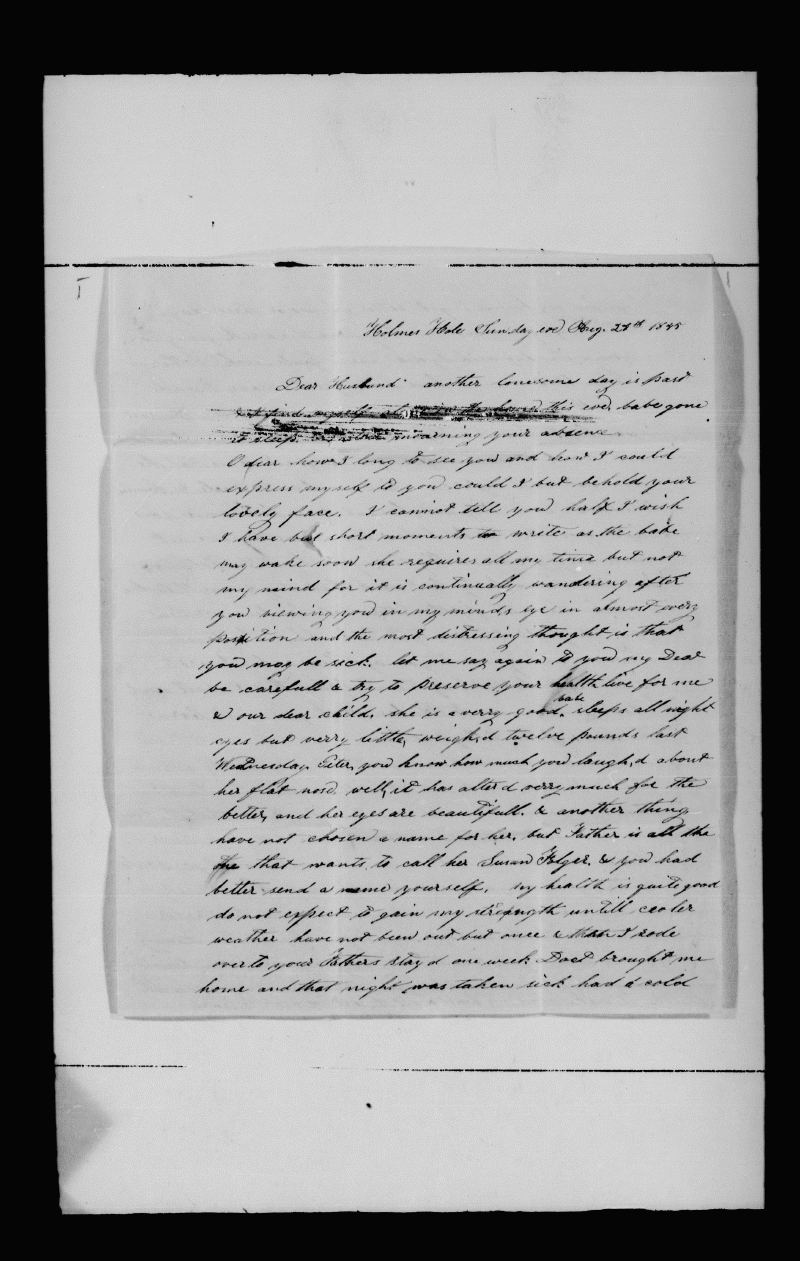 Holmes Hole Sunday eve Aug. 24th 1845
Dear Husband another lonesome day is past
& I find myself in the house this eve, babe gone
to sleep mourning your absence
O dear how I long to see you and how I could
express myself to you could I but behold your
lovely face. I cannot tell you half I wish
I have but short moments to write as the babe
may wake soon she requires all my time but not
my mind for it is continually wandering after
you viewing you in my minds eye in almost every
position and the most distressing thought is that
you may be sick. let me say again to you my Dear
be carefull & try to preserve your health live for me
& our dear child. she is a verry good babe. sleeps all night
cryes but verry little, weigh,d twelve pounds last
Wednesday. Peter, you know how much you laugh,d about
her flat nose. well, it has alterd verry much for the
better, and her eyes are beautifull. & another thing
have not chosen a name for her, but Father is all the
one that wants to call her Susan Folger. & you had
better send a name yourself. my health is quite good
do not expect to gain my strength untill cooler
weather have not been out but once & then I rode
over to your Fathers stay d one week Doct brought me
home and that night was taken sick had a cold